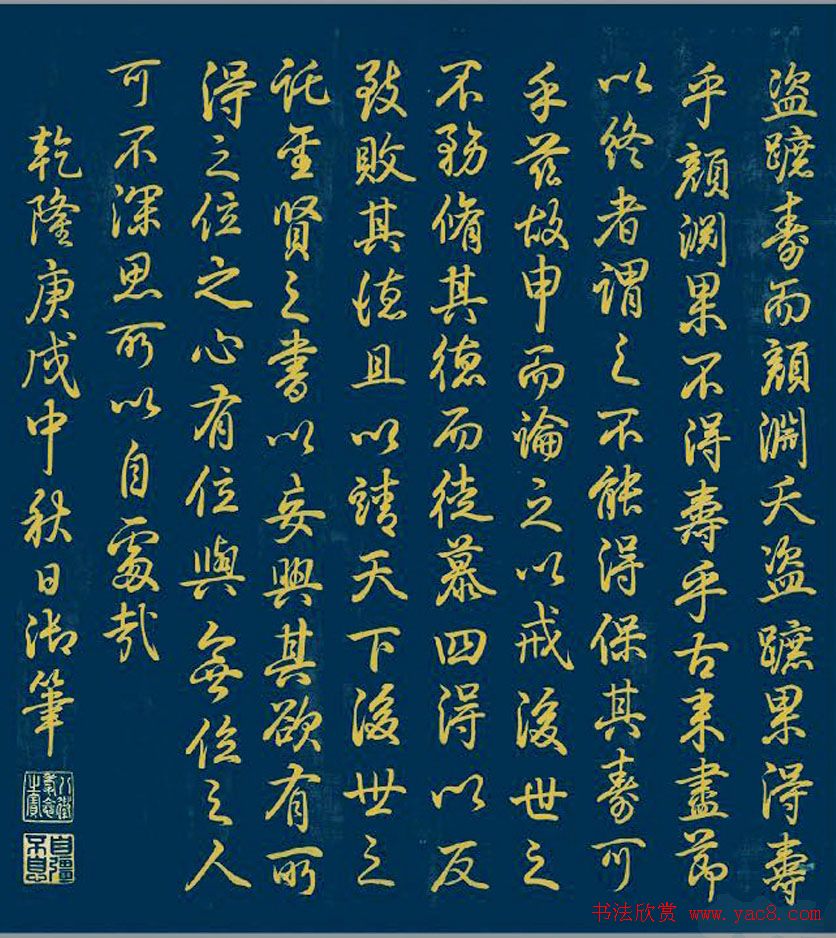 盜蹠壽而顏淵夭盜蹠果得壽
乎顏淵果不得壽乎古来盡節
以終者謂之不能得保其壽可
乎茲故申而論之以戒後世之
不務脩其德而徒慕四得以反
致敗其德且以靖天下後世之
託聖賢之書以妄興其欲有所
得之位之心有位與無位之人
可不深思所以自處哉
乾隆庚戌中秋日御筆
八徵耄念之寶
自彊不息
书法欣赏 www.yac8.com